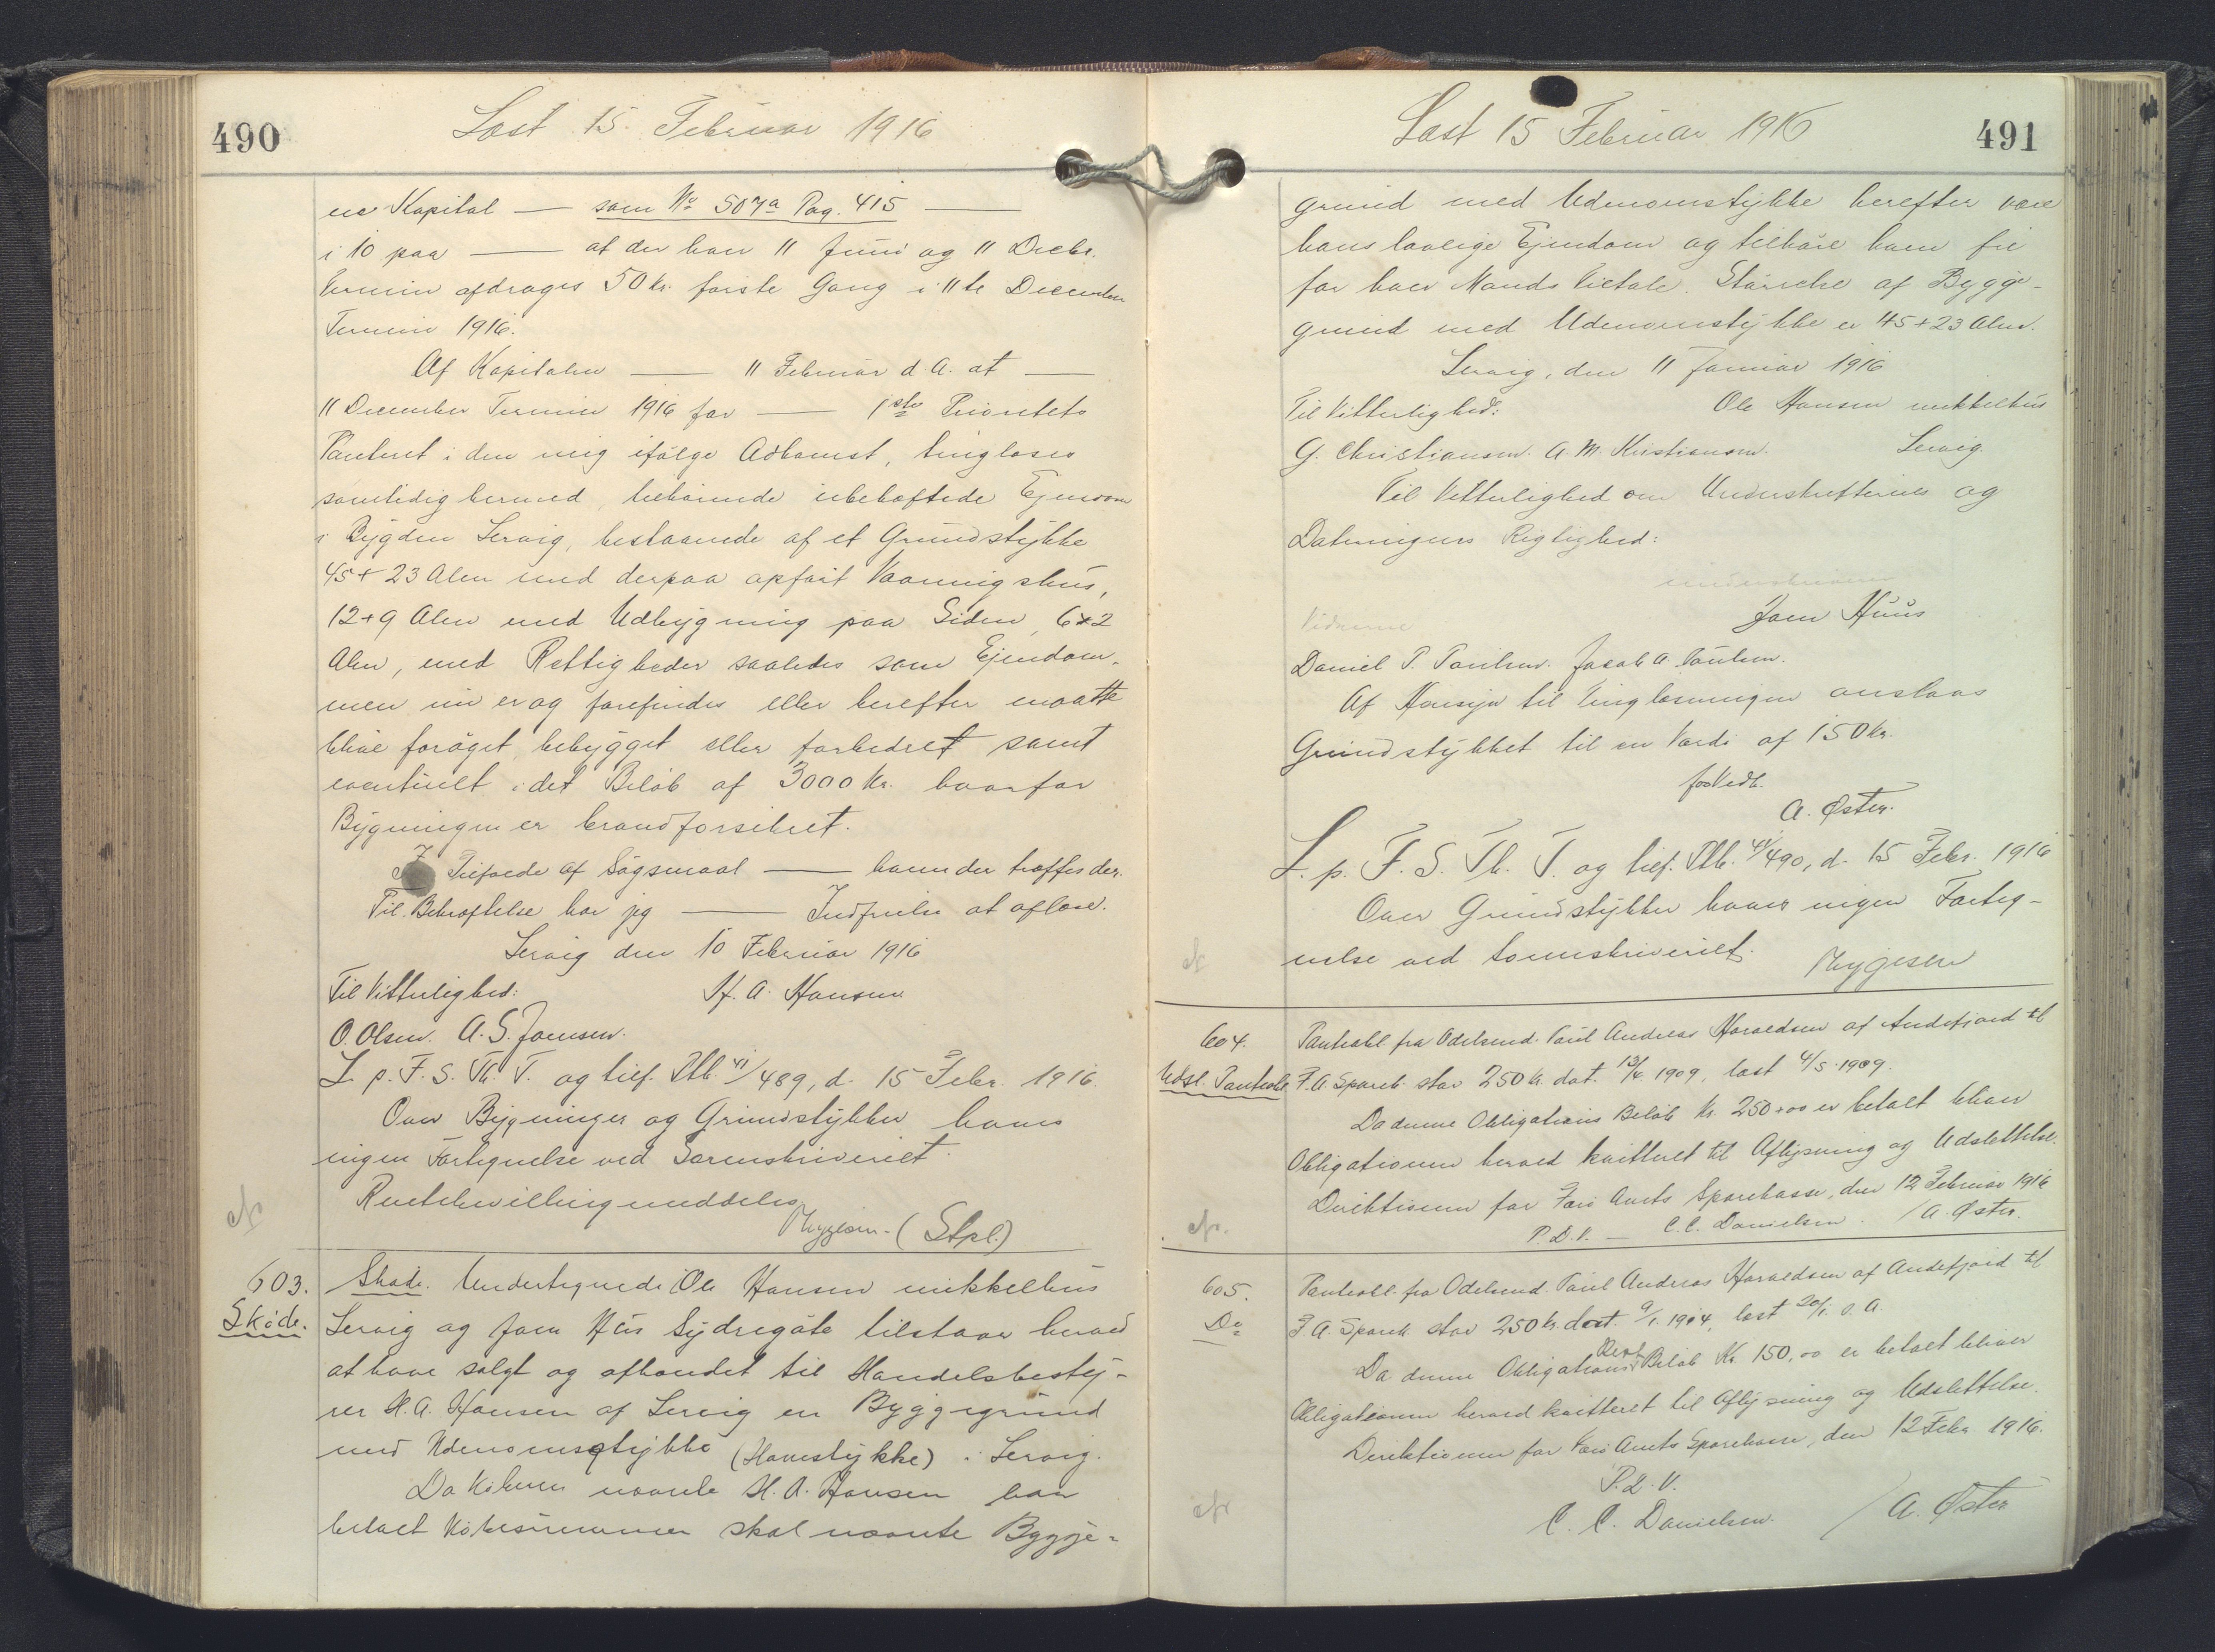 490
Læst 15 Februar 1916
en Kapital — som No 507a Pag. 415 —
i 10 paa — at der hver 11 Juni og 11 Decbr.
Termin afdrages 50 Kr. første Gang i 11te December
Termin 1916.
Af Kapitalen — 11 Februar d. A. at —
11 December Termin 1916 for — 1ste Prioritets
Panteret i den mig ifølge Adkomst, tinglæses
samtidig hermed, tilhørende ubehæftede Ejendom
i Bygden Lervig, bestaaende af et Grundstykke
45+23 Alen med derpaa opført Vaaningshus,
12+9 Alen med Udbygning paa Siden 6x2
Alen, med Rettigheder saaledes som Ejendom-
men nu er og forefindes eller herefter maatte
blive forøget, bebygget eller forbedret samt
eventuelt i det Beløb af 3000 Kr. hvorfor
Bygningen er brandforsikret.
I Tilfælde af Søgsmaal — kan der træffes der.
Til Bekræftelse har jeg — Indfrielse at aflæse.
Lervig den 10 Februar 1916
Til Vitterlighed: H. A. Hansen
O. Olsen. A. S. Joensen.
L. p. F. S. Th. T. og tilf. Ptb. 41/489, d. 15 Febr. 1916.
Over Bygninger og Grundstykker haves
ingen Fortegnelse ved Sorenskriveriet.
Rentebevilling meddeles.
Mygesen (Stpl.)
cfr
603. Skøde. Undertegnede Ole Hansen mikkelhus
Skøde. Lervig og Joen Hus Sydregøte tilstaar herved
at have solgt og afhændet til Handelsbesty-
rer H. A. Hansen af Lervig en Byggegrund
med Udenomsstykke (Havestykke) i Lervig.
Da Køberen nævnte H. A. Hansen har
betalt Købesummen skal nævnte Bygge-
Læst 15 Februar 1916
491
grund med Udenomstykke herefter være
hans lovlige Ejendom og tilhøre ham fri
for hver Mands Tiltale. Størrelse af Bygge-
grund med Udenomstykke er 45+23 Alen.
Lervig, den 11 Januar 1916
Til Vitterlighed: Ole Hansen mikkelhus
G. Christiansen. A. M. Kristiansen. Lervig.
Til Vitterlighed om Underskrifternes og
Dateringens Rigtighed:
underskriveren
Vidnerne Joen Huus
Daniel P. Poulsen. Jacob A. Poulsen.
Af Hensyn til Tinglæsningen anslaas
Grundstykket til en Værdi af 150 Kr.
for Vedk.
A. Øster.
L. p. F. S. Th. T. og tilf. Ptb. 41/490, d. 15 Febr. 1916
Over Grundstykker haves ingen Forteg-
nelse ved Sorenskriveriet. Mygesen
cfr
604. Panteobl. fra Odelsmd. Poul Andreas Haraldsen af Andefjord til
Udsl. Panteobl. F. A. Spareb. stor 250 Kr. dat. 13/4 1909, læst 4/5 1909.
Da denne Obligations Beløb Kr. 250,00 er betalt bliver
Obligationen herved kvitteret til Aflysning og Udslettelse.
Direktionen for Færø Amts Sparekasse, den 12 Februar 1916
P. D. V. — C. C. Danielsen. / A. Øster.
cfr.
605. Panteobl. fra Odelsmd. Poul Andreas Haraldsen af Andefjord til
Do F A. Spareb. stor 250 Kr. dat. 9/1 1914, læst 20/1 s. A.
Da denne Obligations Rest Beløb Kr. 150,00 er betalt bliver
Obligationen herved kvitteret til Aflysning og Udslettelse.
Direktionen for Færø Amts Sparekasse, den 12 Febr. 1916.
P. D. V.
C. C. Danielsen. / A. Øster
cfr